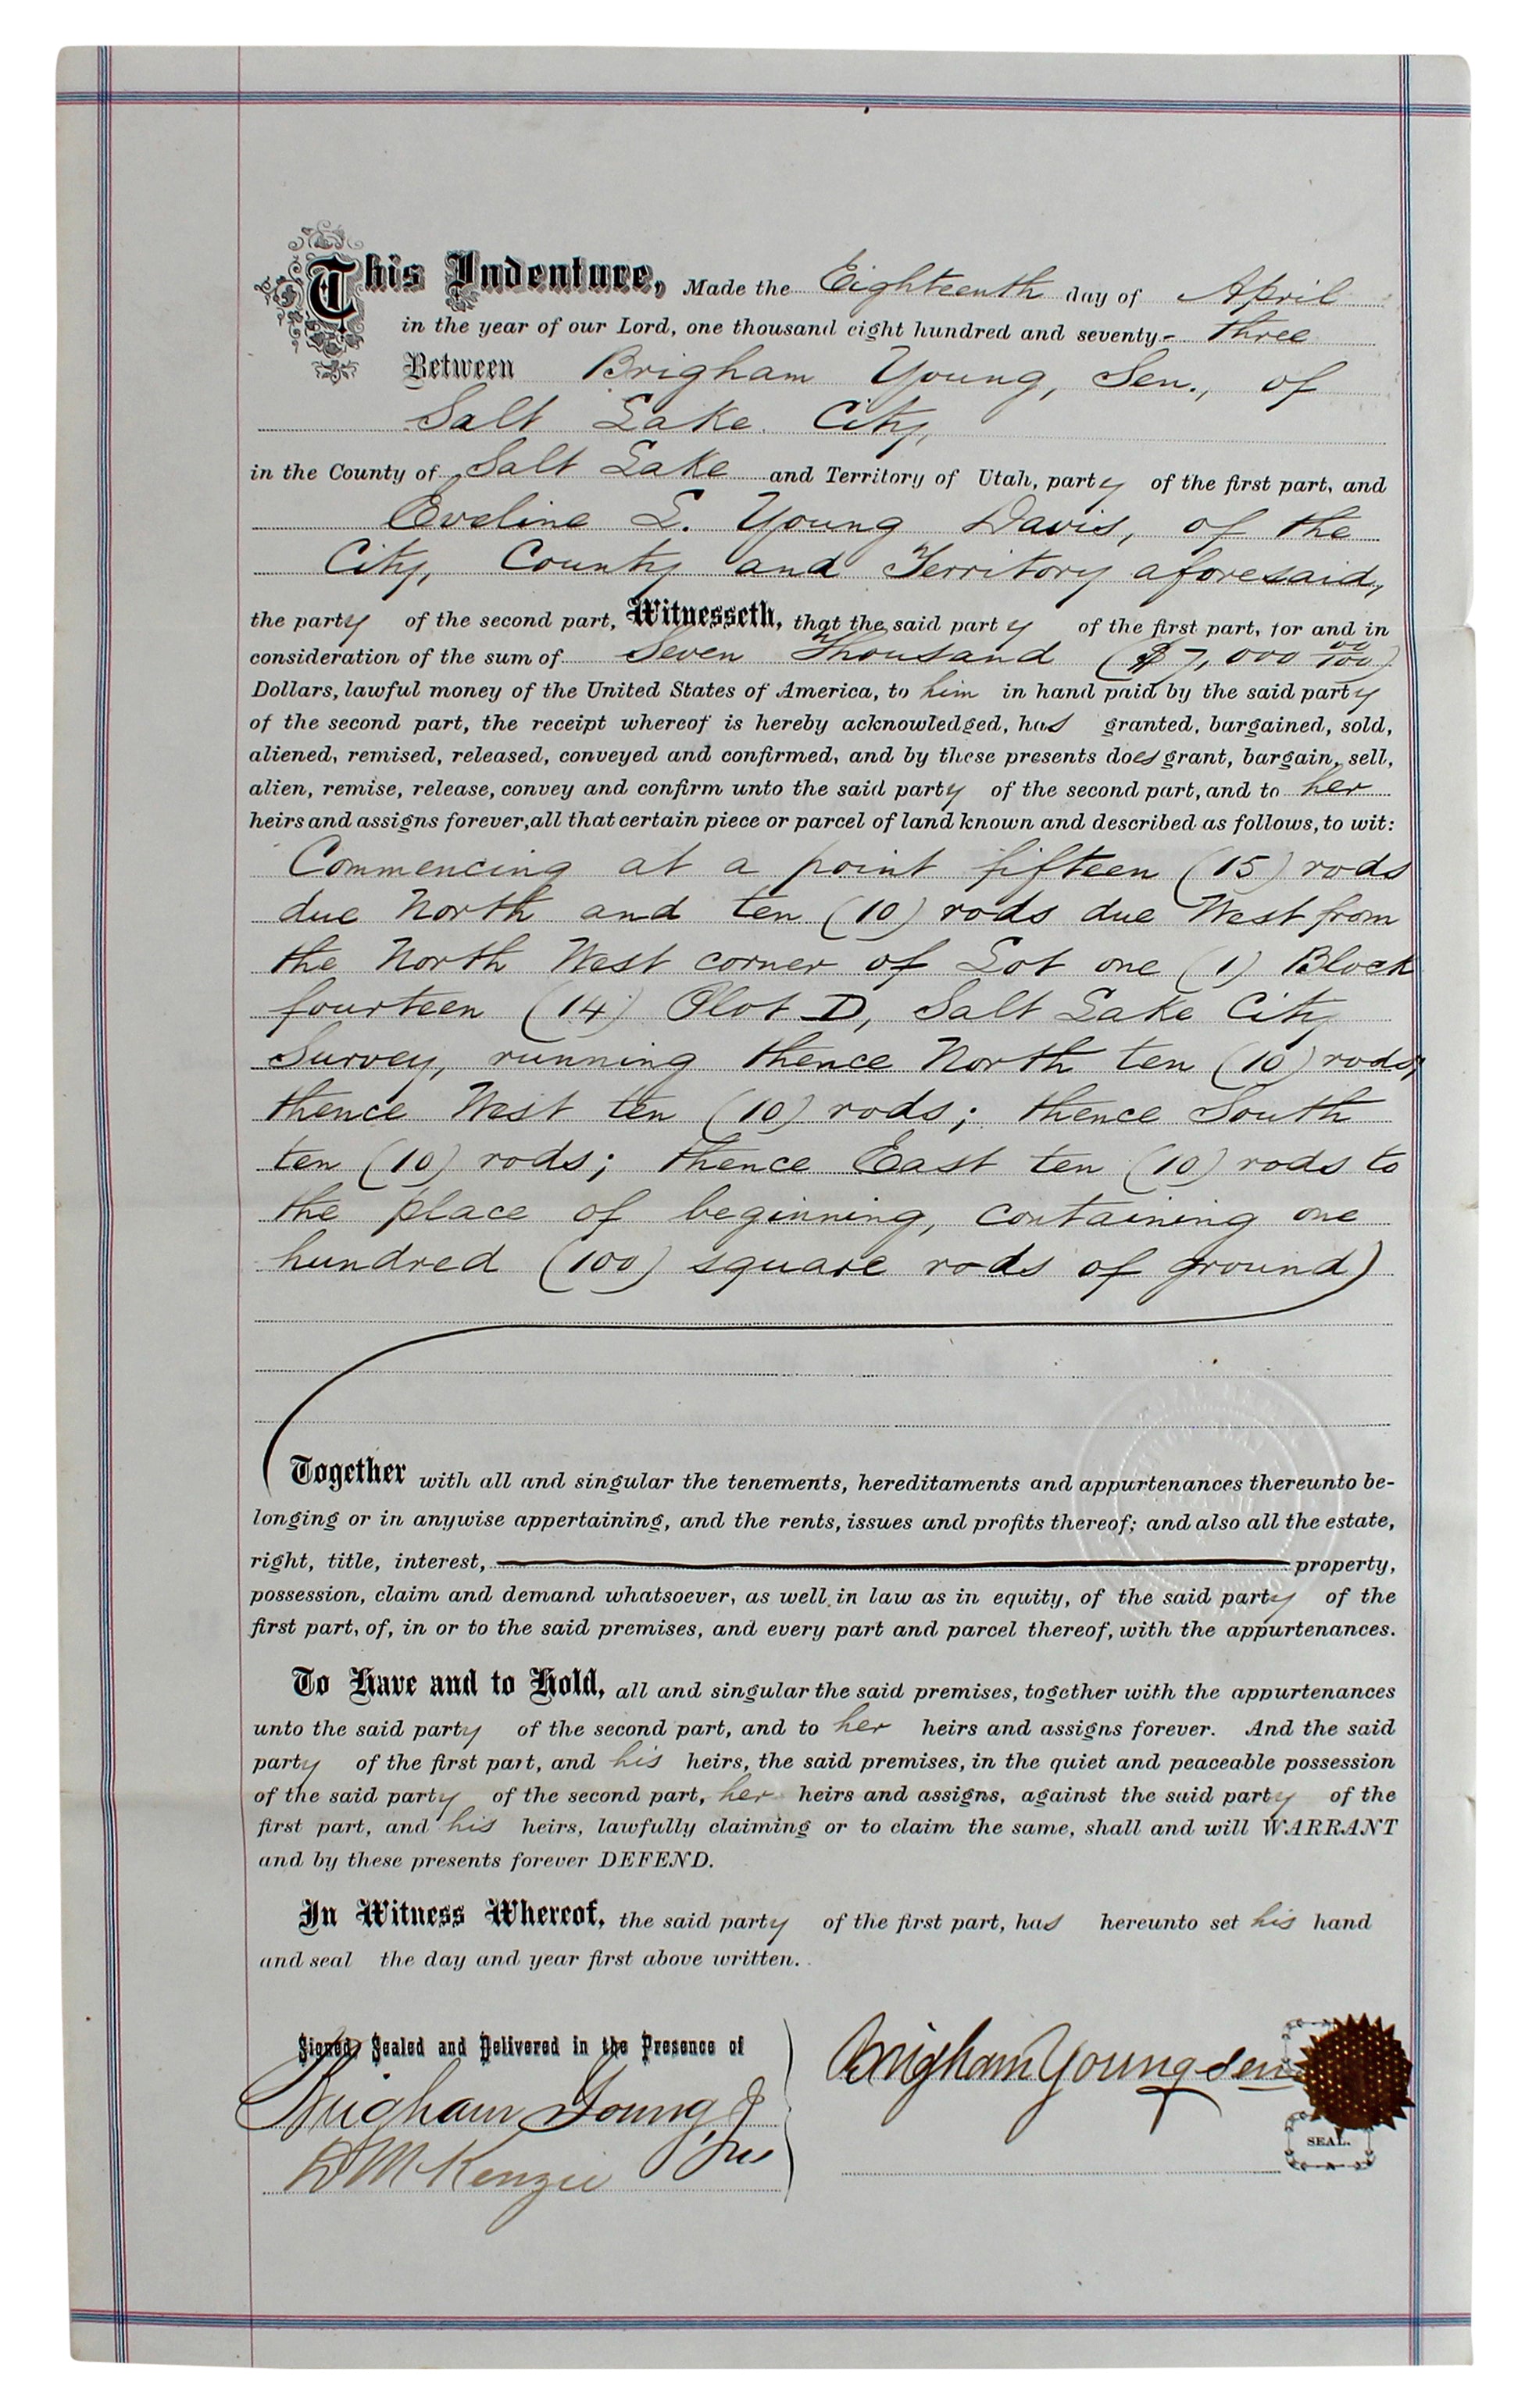 This Indenture, Made the Eighteenth day of April
in the year of our Lord, one thousand eight hundred and seventy- three
Between Brigham Young, Sen., of
Salt Lake City,
in the County of Salt Lake and Territory of Utah, party of the first part, and
Eveline L. Young Davis, of the
City, County and Territory aforesaid,
the party of the second part, Witnesseth, that the said party of the first part, for and in
consideration of the sum of Seven Thousand ($7,000 00/100)
Dollars, lawful money of the United States of America, to him in hand paid by the said party
of the second part, the receipt whereof is hereby acknowledged, has granted, bargained, sold,
aliened, remised, released, conveyed and confirmed, and by these presents does grant, bargain, sell,
alien, remise, release, convey and confirm unto the said party of the second part, and to her
heirs and assigns forever, all that certain piece or parcel of land known and described as follows, to wit:
Commencing at a point fifteen (15) rods
due North and ten (10) rods due West from
the North West corner of Lot one (1) Block
fourteen (14) Plot D, Salt Lake City
Survey, running thence North ten (10) rods;
thence West ten (10) rods; thence South
ten (10) rods; thence East ten (10) rods to
the place of beginning, containing one
hundred (100) square rods of ground)
Together with all and singular the tenements, hereditaments and appurtenances thereunto be-
longing or in anywise appertaining, and the rents, issues and profits thereof; and also all the estate,
right, title, interest, property,
possession, claim and demand whatsoever, as well in law as in equity, of the said party of the
first part, of, in or to the said premises, and every part and parcel thereof, with the appurtenances.
To Have and to Hold, all and singular the said premises, together with the appurtenances
unto the said party of the second part, and to her heirs and assigns forever. And the said
party of the first part, and his heirs, the said premises, in the quiet and peaceable possession
of the said party of the second part, her heirs and assigns, against the said party of the
first part, and his heirs, lawfully claiming or to claim the same, shall and will WARRANT
and by these presents forever DEFEND.
In Witness Whereof, the said party of the first part, has hereunto set his hand
and seal the day and year first above written.
Signed, Sealed and Delivered in the Presence of
Brigham Young Sen
Brigham Young, Jr
D McKenzie
SEAL.